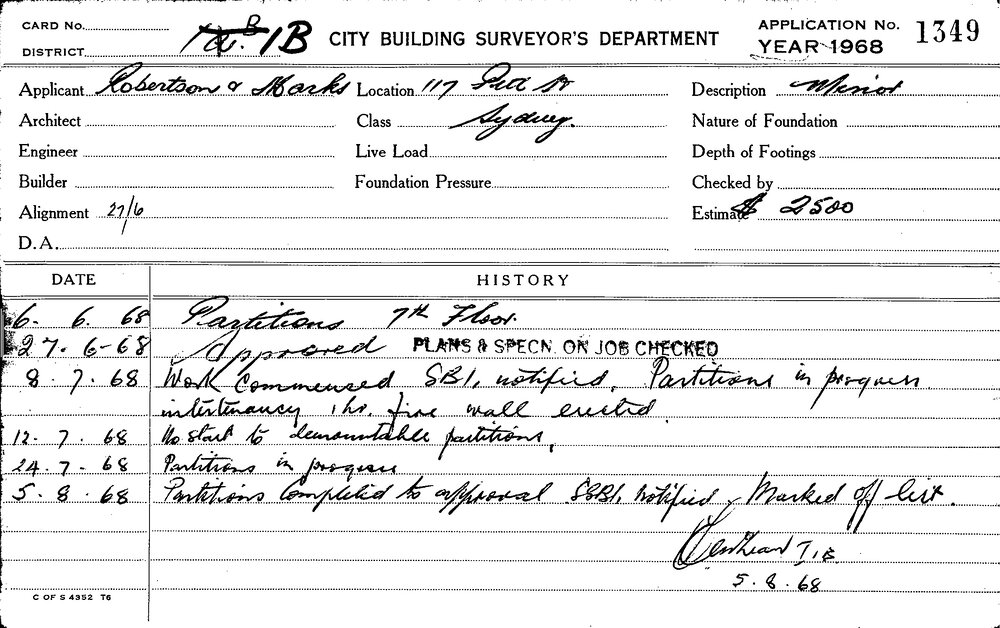 CARD No.
DISTRICT 1B
CITY BUILDING SURVEYOR'S DEPARTMENT
APPLICATION No. 1349
YEAR 1968
Applicant Robertson & Marks Location 117 Pitt St Description Minor
Architect Class Sydney. Nature of Foundation
Engineer Live Load Depth of Footings
Builder Foundation Pressure Checked by
Alignment 27/6 Estimate $ 2500
D.A.
DATE HISTORY
6. 6. 68 Partitions 7th Floor.
27. 6-68 Approved PLANS & SPECN. ON JOB CHECKED
8. 7. 68 Work commenced SBI, notified, Partitions in progress
intertenancy 1 hr. fire wall erected
12. 7. 68 No start to demountable partitions,
24. 7 - 68 Partitions in progress
5. 8. 68 Partitions completed to approval SSBI, notified, Marked off list.
5. 8. 68
C OF S 4352 T6